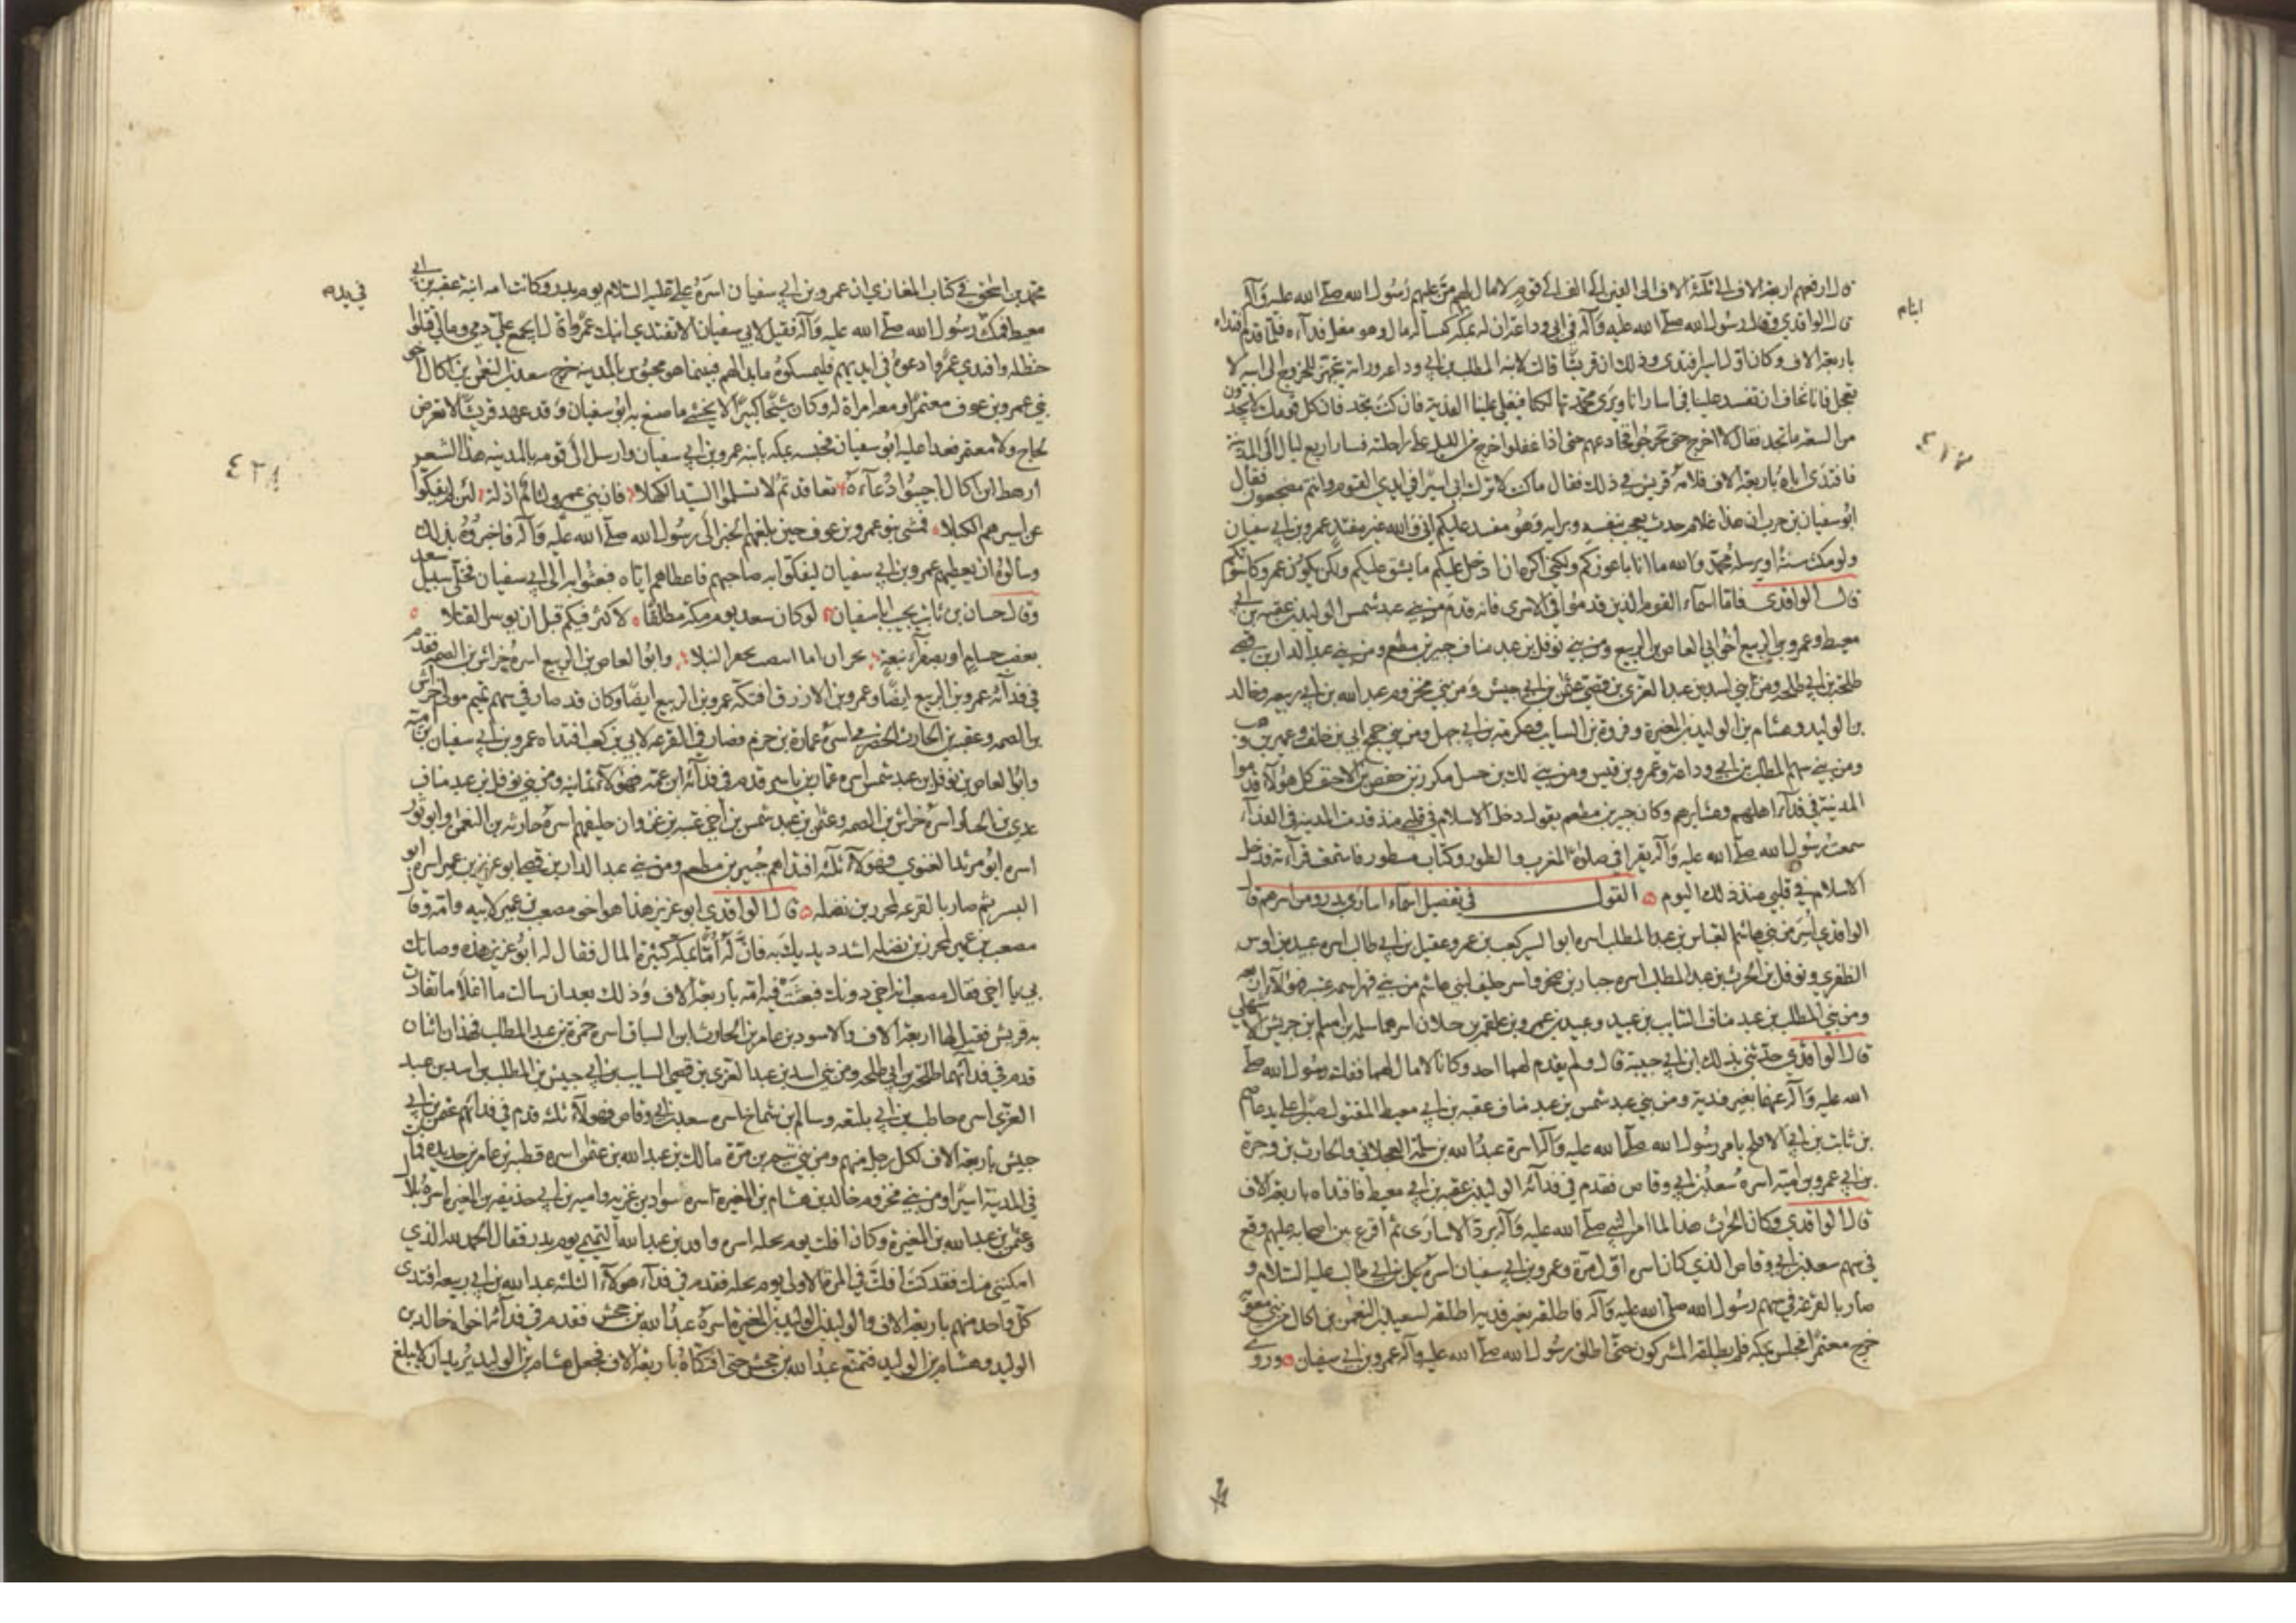 قال ارفعهم اربعة الاف الى ثلثة الاف الى الفين الى الف الى قوم لا مال لهم من عليهم رسول الله صلى الله عليه وآله
قال الواقدي وقال رسول الله صلى الله عليه وآله في ابي وداعة ان له بمكة كيسا له مال وهو مغل فدآءه فلما قدم فداء
ايام
باربعة الاف وكان اول اسير افتدى وذلك ان قريشا قالت لابنه المطلب بن ابي وداعه ورأته يتجهز للخروج الى ابيه لا
تعجل فانا نخاف ان تفسد علينا في اسارانا ويرى محمد تهالكنا فيغلى علينا الفدية فان كنت تجد فان كل قومك لا يجدون
من السعة ما تجد فقال لا اخرج حتى تخرجوا فخادعهم حتى اذا غفلوا خرج من الليل على راحلته فسار اربع ليال الى المدينة
٤٢٧
فافتدى اباه باربعة الاف فلامه قريش في ذلك فقال ما كنت لاترك ابي اسيرا في ايدي القوم وانتم مضجعون فقال
ابو سفيان بن حرب ان هذا غلام حدث يعجب بنفسه وبرايه وهو مفسد عليكم اني والله غير مفتد عمرو بن ابي سفيان
ولو مكث سنة او يرسله محمد والله ما انا باعوزكم ولكني اكره ان ادخل عليكم ما يشق عليكم ولكن يكون عمرو كاسوتكم
قال الواقدي فاما اسماء القوم الذين قدموا في الاسرى فانه قدم من بني عبد شمس الوليد بن عقبه بن ابي
معيط وعمرو بن الربيع اخو ابي العاص بن الربيع ومن بني نوفل بن عبد مناف جبير بن مطعم ومن بني عبد الدار بن قصي
طلحة بن ابي طلحة ومن بني اسد بن عبد العزى بن قصي عثمن بن ابي حبيش ومن بني مخزوم عبد الله بن ابي ربيعه وخالد
بن الوليد وهشام بن الوليد بن المغيرة وفروة بن السايب وعكرمة بن ابي جهل ومن بني جمح ابي بن خلف وعمير بن وهب
ومن بني سهم المطلب بن ابي وداعة وعمرو بن قيس ومن بني لك بن حسل مكرز بن حفص بن الاحنف كل هؤلاء قدموا
المدينة في فدآء اهلهم وعشايرهم وكان جبير بن مطعم يقول دخل الاسلام في قلبي منذ قدمت المدينة في الفدآء
سمعت رسول الله صلى الله عليه وآله يقرا في صلوة المغرب والطور وكتاب مسطور فاستمعت قراءته فدخل
الاسلام في قلبي منذ ذلك اليوم ۞ القول في تفصيل اسماء اسارى بدر ومن اسرهم قال
الواقدي أسر من بني هاشم العباس بن عبد المطلب اسره ابو اليسر كعب بن عمرو وعقيل بن ابي طالب اسره عبيد بن اوس
الظفري ونوفل بن الحرث بن عبد المطلب اسره جبار بن صخر واسر حليف لبني هاشم من بني فهر اسمه عتبه فهؤلآء اربعه
ومن بني المطلب بن عبد مناف السايب بن عبيد وعبيد بن عمرو بن علقمه رجلان اسرهما سلمه بن اسلم بن حريش الاشهلي
قال الواقدي حدثني بذلك ابن ابي حبيبة قال ولم يقدم لهما احد وكانا لا مال لهما ففك رسول الله صلى
الله عليه وآله عنهما بغير فدية ومن بني عبد شمس بن عبد مناف عقبه بن ابي معيط المقتول صبرا على يد عاصم
بن ثابت بن ابي الافلح بامر رسول الله صلى الله عليه وآله اسره عبد الله بن سلمة العجلاني والحارث بن وحرة
بن ابي عمرو بن امية اسره سعد بن ابي وقاص فقدم في فدآئه الوليد بن عقبه بن ابي معيط فافتداه باربعة الاف
قال الواقدي وكان الحرث هذا لما امر النبي صلى الله عليه وآله برد الاسارى ثم اقرع بين اصحابه عليهم وقع
في سهم سعد بن ابي وقاص الذي كان اسره اول مرة وعمرو بن ابي سفيان اسره علي بن ابي طالب عليه السلام و
صار بالقرعة في سهم رسول الله صلى الله عليه وآله فاطلقه بغير فدية اطلقه لسعد بن النعمن بن اكال من بني معويه
خرج معتمرا فحبس بمكة فلم يطلقه المشركون حتى اطلق رسول الله صلى الله عليه وآله عمرو بن ابي سفيان ۞ وروى
محمد بن اسحق في كتاب المغازي ان عمرو بن ابي سفيان اسره علي عليه السلام يوم بدر وكانت امه ابنة عقبه بن ابي
في يده
معيط فمكث رسول الله صلى الله عليه وآله فقيل لابي سفيان الا تفتدي ابنك عمرا قال ايجمع علي دمي ومالي قتلوا
حنظله وافتدي عمرا دعوه في ايديهم فليمسكوه ما بدا لهم فبينما هو محبوس بالمدينة خرج سعد بن النعمن بن اكال اخو
بني عمرو بن عوف معتمرا ومعه امراة له وكان شيخا كبيرا لا يخشى ما صنع به ابو سفيان وقد عهد قريشا لا تعرض
لحاج ولا معتمر فعدا عليه ابو سفيان فحبسه بمكة بابنه عمرو بن ابي سفيان وارسل الى قومه بالمدينه هذا الشعر
٤٢٨
ارهط ابن اكال اجيبوا دعآءه تعاقدتم لا تسلموا السيد الكهلا فان بني عمرو لئام اذلة لئن لم يفكوا
عن اسيرهم الكبلا فمشى بنو عمرو بن عوف حين بلغهم الخبر الى رسول الله صلى الله عليه وآله فاخبروه بذلك
وسالوه ان يعطيهم عمرو بن ابي سفيان ليفكوا به صاحبهم فاعطاهم اياه فبعثوا به الى ابي سفيان فخلى سبيل سعد
وقال حسان بن ثابت يجيب ابا سفيان لو كان سعد يوم مكة مطلقا لاكثر فيكم قبل ان يوسر القتلا
بعضب حسام او بصفرآء نبعة وابو العاص بن الربيع اسره خراش بن الصمه فقدم
في فدآئه عمرو بن الربيع ايضا وعمرو بن الازرق افتكه عمرو بن الربيع ايضا وكان قد صار في سهم تميم مولى خراش
بن الصمه وعقبه بن الحارث الحضرمي اسره عمارة بن حزم فصار في القرعه لابي بن كعب افتداه عمرو بن ابي سفيان بن اميه
وابو العاص بن نوفل بن عبد شمس اسره عمار بن ياسر قدم في فدآئه ابن عمه فهؤلآء ثمانية ومن بني نوفل بن عبد مناف
عدي بن الخيار اسره خراش بن الصمه وعثمن بن عبد شمس بن اخي عتبه بن غزوان حليفهم اسره حارثه بن النعمن وابو ثور
اسره ابو مرثد الغنوي فهؤلآء ثلثة افتداهم جبير بن مطعم ومن بني عبد الدار بن قصي ابو عزيز بن عمير اسره ابو
اليسر ثم صار بالقرعه لمحرز بن نضله ۞ قال الواقدي ابو عزيز هذا هو اخو مصعب بن عمير لابيه وامه وقال
مصعب بن عمير لمحرز بن نضله اشدد يديك به فان له أما بمكة كثيرة المال فقال له ابو عزيز هذه وصاتك
بي يا اخي فقال مصعب انه اخي دونك فبعثت فيه امه باربعة الاف وذلك بعد ان سالت ما اغلا ما تفادت
به قريش فقيل لها اربعة الاف والاسود بن عامر بن الحارث بن السباق اسره حمزة بن عبد المطلب فهذان اثنان
قدم في فدآئهما طلحة بن ابي طلحه ومن بني اسد بن عبد العزى بن قصي السايب بن ابي حبيش بن المطلب بن اسد بن عبد
العزى اسره حاطب بن ابي بلتعه وسالم بن شماخ اسره سعد بن ابي وقاص فهؤلآء ثلثه قدم في فدآئهم عثمن بن ابي
حبيش باربعة الاف لكل رجل منهم ومن بني تيم بن مرة مالك بن عبد الله بن عثمن اسره قطبه بن عامر بن حديده فمات
في المدينة اسيرا ومن بني مخزوم خالد بن هشام بن المغيرة اسره سواد بن غزيه واميه بن ابي حذيفه بن المغيره اسره بلال
وعثمن بن عبد الله بن المغيرة وكان افلت يوم نخله اسره واقد بن عبد الله التميمي يوم بدر فقال الحمد لله الذي
امكنني منك فقد كنت افلت في المرة الاولى يوم نخله فقدم في فدآء هؤلآء الثلثة عبد الله بن ابي ربيعه افتدى
كل واحد منهم باربعة الاف والوليد بن الوليد بن المغيرة اسره عبد الله بن جحش فقدم في فدآئه اخواه خالد بن
الوليد وهشام بن الوليد فتمنع عبد الله بن جحش حتى افتكاه باربعة الاف فجعل هشام بن الوليد يريد ان لا يبلغ